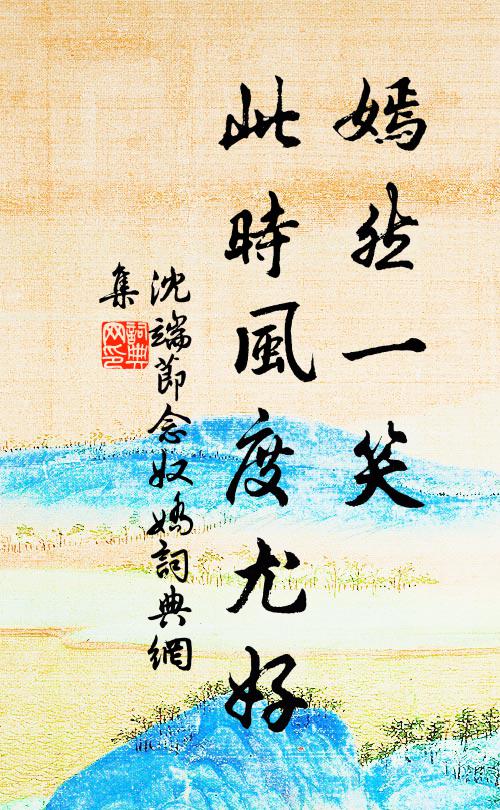 嫣然一笑
此時風度尤好
沈端節念奴嬌詞典網
集
詞典
网印